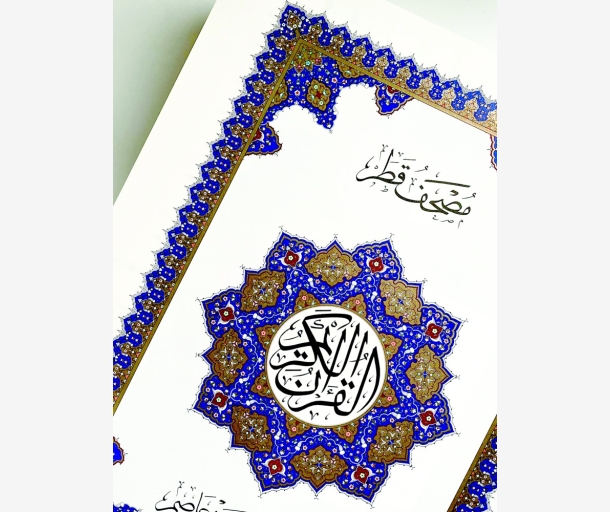 مُصْحَفُ قَطَر
القرآن الكريم